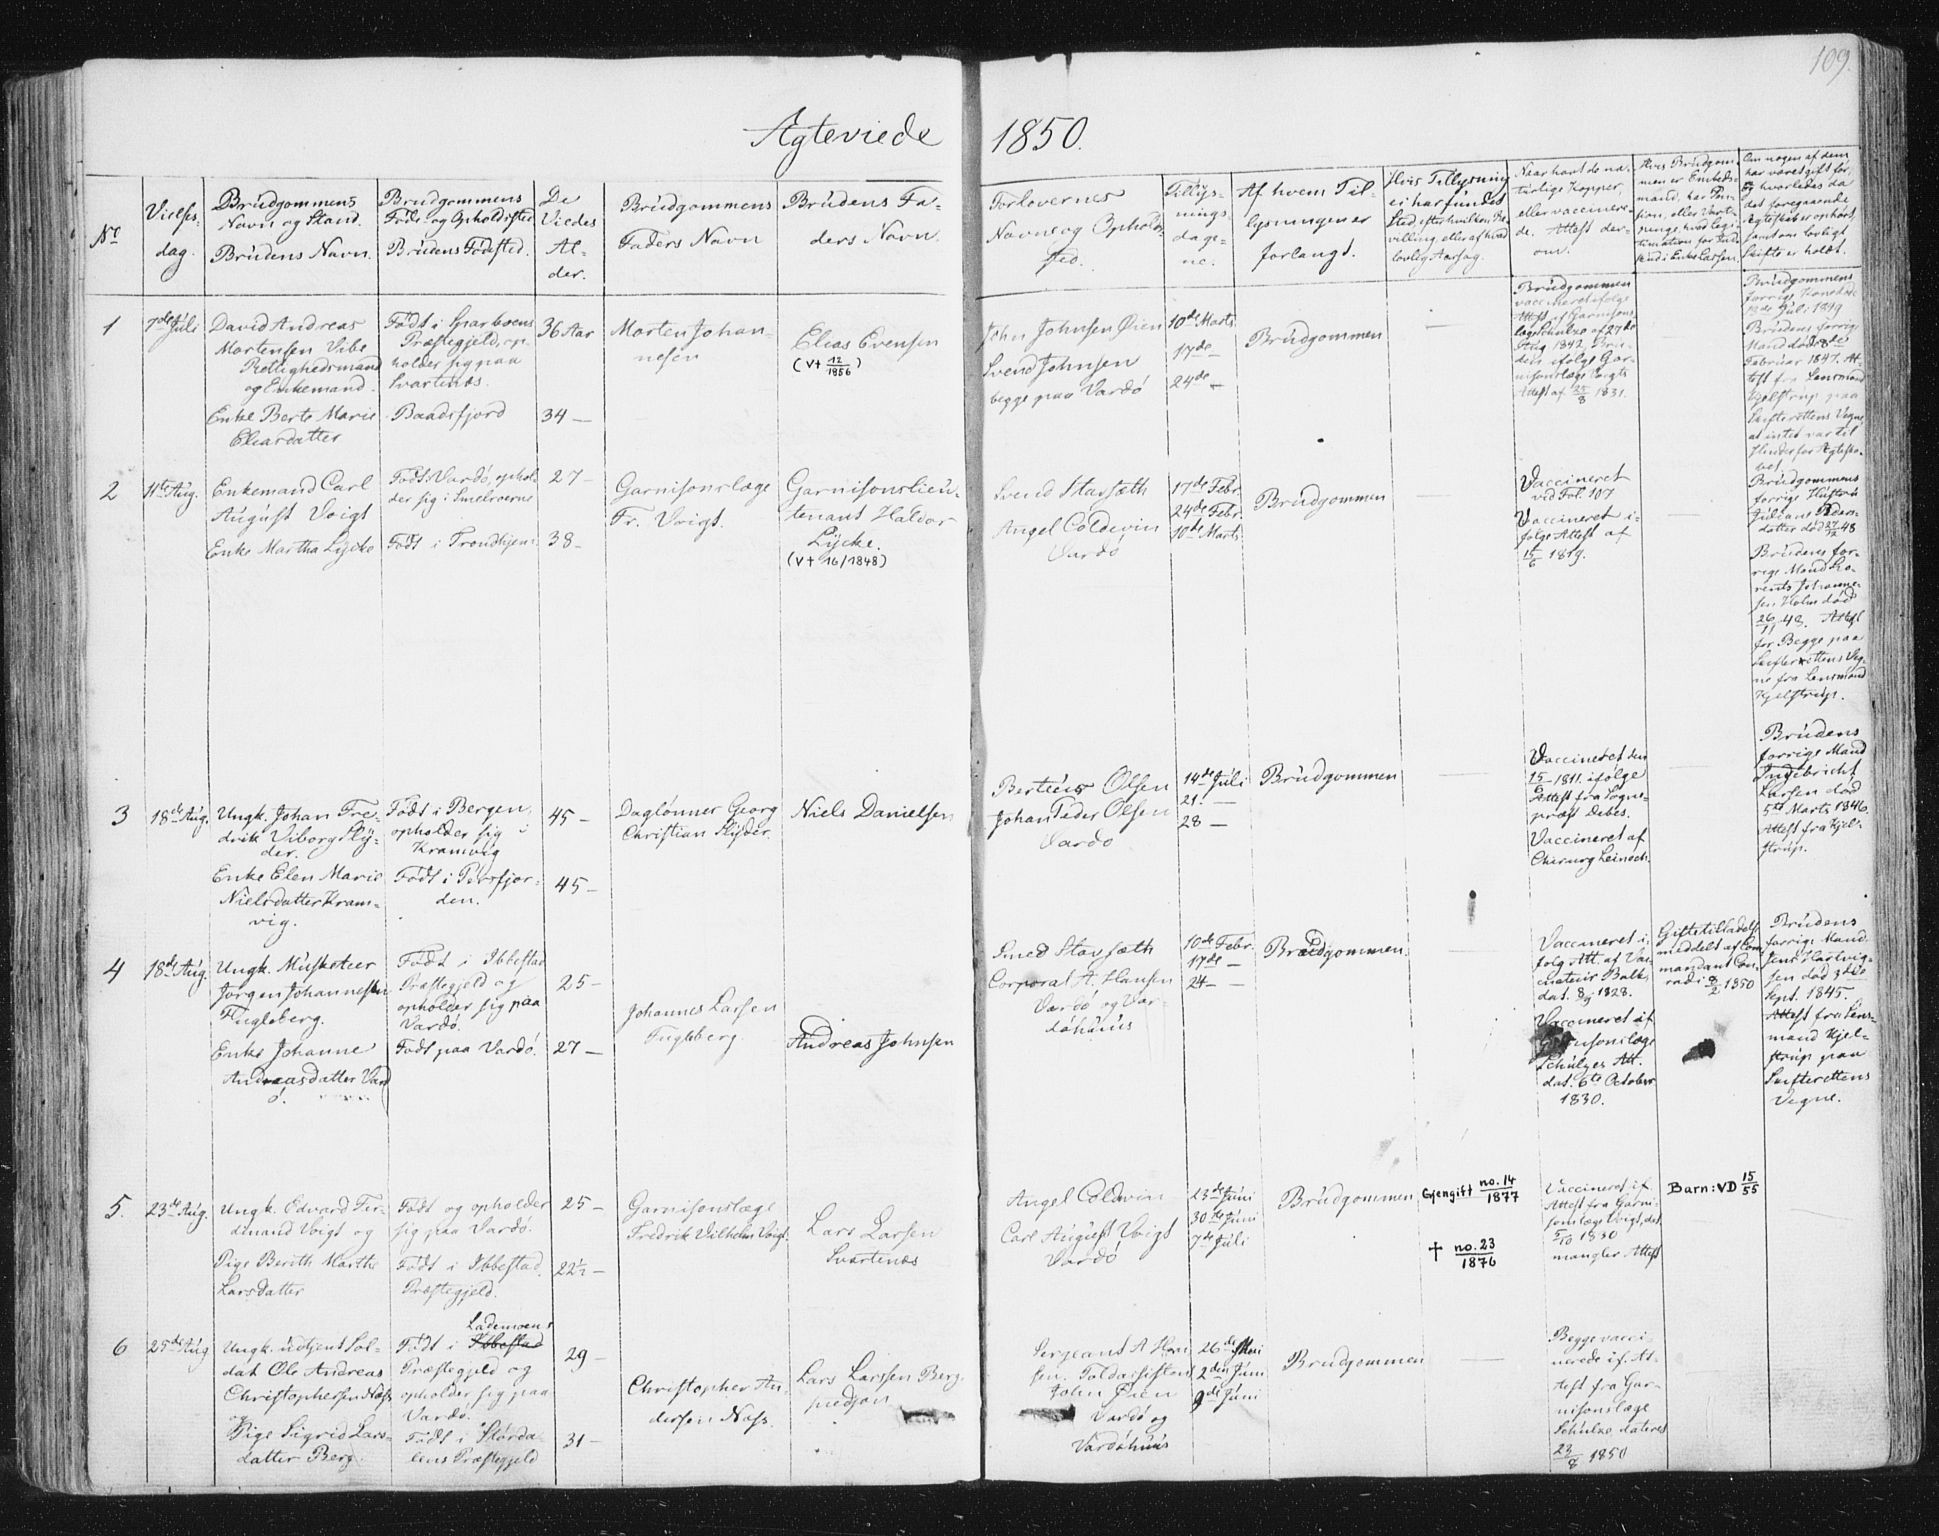 109.
Agteviede 1850.
No
Vielses-
dag.
Brudgommens
Navn og Stand.
Brudens Navn.
Brudgommens
Føde- og Opholdssted.
Brudens Fødested.
De
Viedes
Al-
der.
Brudgommens
Faders Navn
Brudens Fa-
ders Navn.
Forlovernes
Navne og Opholds-
sted.
Tillys-
nings-
dage-
ne.
Af hvem Til-
lysningen er
forlangt.
Hvis Tillysning
ei har fundet
Sted, efter hvilken Be-
villing, eller af hvad
lovlig Aarsag.
Naar havt de na-
turlige Kopper,
eller vaccinere-
de. Attest der-
om.
Hvis Brudgom-
men er Embeds-
mand, har Pen-
sion, eller Vart-
penge, hvad Legi-
timation for Ind-
skud i Enkecassen.
Om nogen af dem
har været gift før,
og hvorledes da
det foregaaende
Ægteskab er ophørt,
samt om lovligt
Skifte er holdt.
1
7de Juli
David Andreas
Mortensen Vibe
Rettighedsmand
og Enkemand.
Enke Berte Marie
Eliasdatter
Født i Sparboens
Præstegjeld, op-
holder sig paa
Svartnæs.
Baadsfjord
36 Aar
34 —
Morten Johan-
nesen
Elias Evensen
(V† 12/1856)
John Johnsen Øien
Svend Johnsen
begge paa Vardö
10de Marts
17de —
24de —
Brudgommen
—
Brudgommen
vaccineret ifølge
Attest af Garnisons-
læge Schulze af 27de
Aug 1842, Bru-
den ifølge Gar-
nisonslæge Voigts
Attest af 25/8 1831.
Brudgommens
forrige Kone død
13de Juli 1849
Brudens forrige
Mand død 8de
Februar 1847. At-
test fra Lensmand
Kjelstrup paa
Skifterettens Vegne
at intet var til
Hinder for Ægteska-
bet.
2
11te Aug.
Enkemand Carl
August Voigt
Enke Martha Lycke
Født i Vardö, ophol-
der sig i Smelrorene
Født i Trondhjem
27 —
38 —
Garnisonslæge
Fr. Voigt.
Garnisonslieu-
tenant Haldor
Lycke.
(V† 16/1848)
Svend Stavsæth
Angel Coldevin
Vardö
17de Febr.
24de Febr.
10de Marts
Brudgommen
—
Vaccineret
vid Fol. 107
Vaccineret i-
følge Attest af
15/6 1819.
—
Brudgommens
forrige Hustru
Juliane Peders-
datter død 27/12 48
Brudens for-
rige Mand Lo-
rents Johanne-
sen Holm død
26/11 48. Attest
for Begge paa
Skifterettens Veg-
ne fra Lensmand
Kjelstrup.
3
18de Aug.
Ungk. Johan Fre-
drik Viborg Sly-
der.
Enke Elen Marie
Nielsdatter Kram-
vig.
Født i Bergen,
opholder sig i
Kramvig
Født i Persfjor-
den.
45 —
45 —
Daglønner Georg
Christian Slyder.
Niels Danielsen
Bertius Olsen
Johan Peder Olsen
Vardö
14de Juli
21 —
28 —
Brudgommen
—
Vaccineret den
15/6 1811. ifølge
Attest fra Sogne-
præst Debes.
Vaccineret af
Chirurg Leinoch.
—
Brudens
forrige Mand
Ingebricht
Larsen død
5te Marts 1846
Attest fra Kjel-
strup.
4
18de Aug.
Ungk. Musketeer
Jørgen Johannesen
Fugleberg.
Enke Johanne
Andreasdatter Vard-
ö.
Født i Ibbestad
Præstegjeld og
opholder sig paa
Vardö.
Født paa Vardö.
25 —
27 —
Johannes Larsen
Fugleberg.
Andreas Johnsen
Smed Stavsæth
Corporal A. Hansen
Vardö og Var-
döhuus
10de Febr.
17de —
24 — —
Brudgommen.
—
Vaccineret i-
følg. Att. af Vac-
cinateur Balke,
dat. 8/9 1828.
Vaccineret if
Garnisonslæge
Schulzes Att.
dat. 6te October
1830.
Giftetilladelse
meddelt af Com-
mandant Con-
radi 8/2 1850
Brudens
forrige Mand
Jens Hartvig-
sen død 3die
Sept. 1845.
Attest fra Lens-
mand Kjel-
strup paa
Skifterettens
Vegne.
5.
23de Aug.
Ungk. Edvard Fer-
dinand Voigt og
Pige Berith Marthe
Larsdatter
Født og opholder
sig paa Vardö.
Født i Ibbestad
Præstegjeld.
25 —
22½ —
Garnisonslæge
Fredrik Vilhelm Voigt
Lars Larsen
Svartnæs
Angel Coldevin
Carl August Voigt
Vardö
23de Juni
30de Juni
7de Juli
Brudgommen
Gjengift no. 14/1877
† no. 23/1876
Vaccineret if.
Attest fra Garni-
sonslæge Voigt, dat.
5/10 1830
mangler Attest
Barn: VD 15/55
6
25de Aug
Ungk. udtjent Sol-
dat Ole Andreas
Christophersen Næss
og
Pige Sigrid Lars-
datter Berg.
Lademoens
Født i Ibbestad
Præstegjeld og
opholder sig paa
Vardö.
Født i Størda-
lens Præstegjeld
29 —
31 —
Christopher An-
dersen Næss.
Lars Larsen Berg
Sergeant A Han-
sen. Toldassistent
John Øien
Vardö og
Vardöhuus
26de Mai
2den Juni
9de Juni
Brudgommen
—
Begge vacci-
nerede if. At-
test fra Gar-
nisonslæge
Schulze dateret
23/8 1850